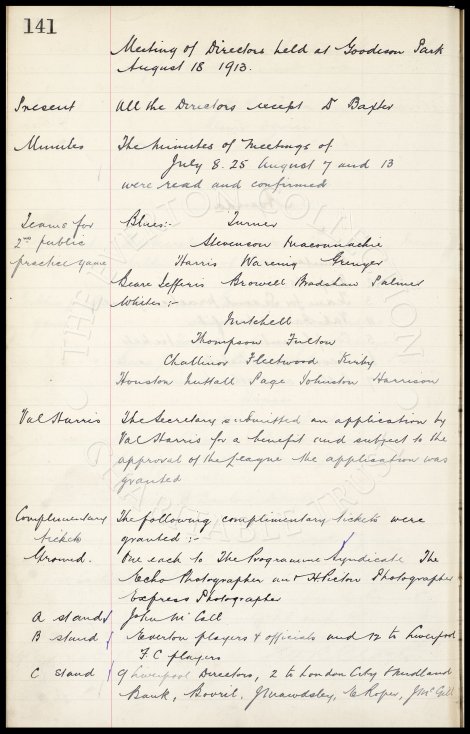 141
Meeting of Directors held at Goodison Park
August 18 1913.
Present All the Directors except Dr Baxter
Minutes The minutes of meetings of
July 8. 25 August 7 and 13
were read and confirmed
Teams for Blues:- Turner
2nd public Stevenson Maconnachie
practice game Harris Wareing Grenyer
Geare Jefferis Browell Bradshaw Palmer
Whites:-
Mitchell
Thompson Fulton
Challinor Fleetwood Kirby
Houston Nuttall Page Johnston Harrison
Val Harris The Secretary submitted an application by
Val Harris for a benefit and subject to the
approval of the League the application was
granted
Complimentary The following complimentary tickets were
tickets granted:-
Ground. One each to The Programme Syndicate The
Echo Photographer and H Picton Photographer
Express Photographer
A stand John McCall
B stand Everton players & officials and 12 to Liverpool
F.C players
C stand 9 Liverpool Directors, 2 to London City & Midland
Bank, Bovril, J Mawdsley, E Roper, J McGill